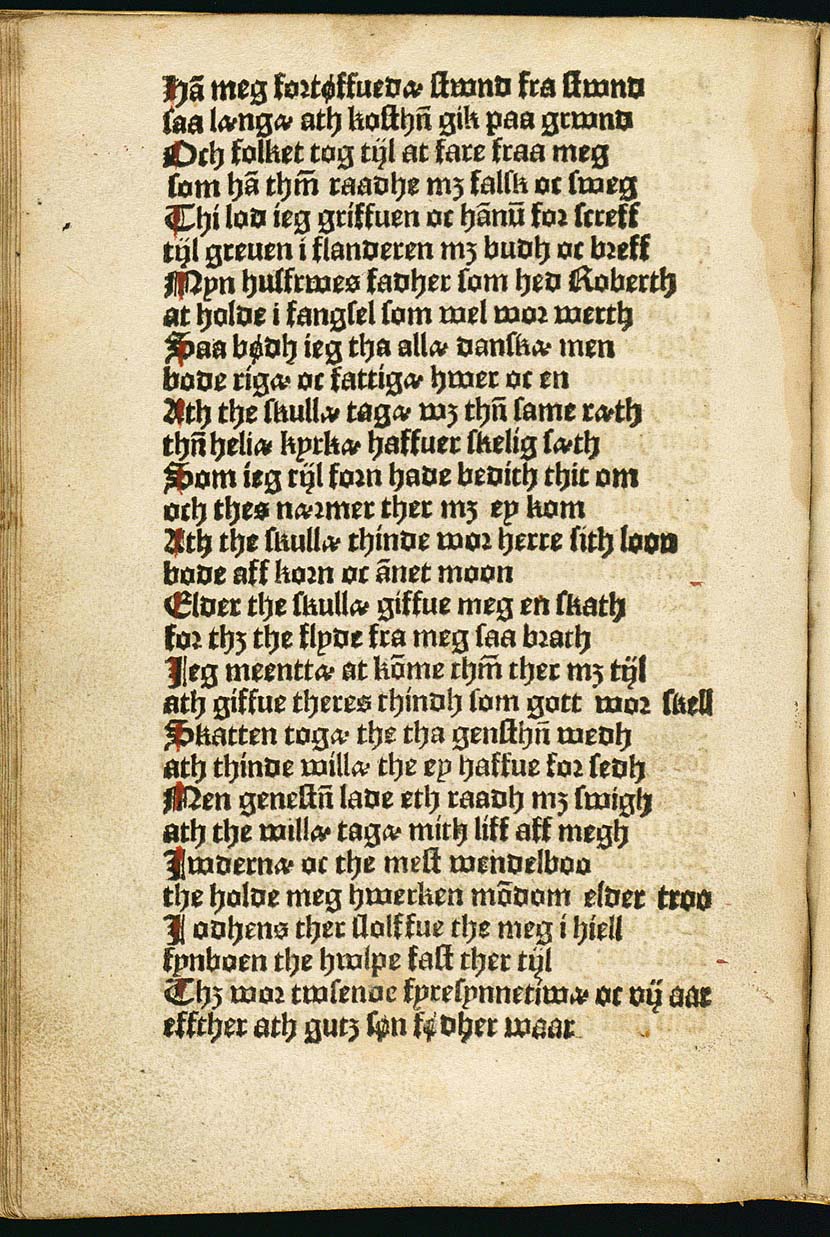 Hā meg fortøffuedæ stwnd fra stwnd
saa længæ ath kosthn̄ gik paa grwnd
Och folket tog tijl at fare fraa meg
som hā thm̄ raadhe mꝫ falsk oc sweg
Thi lod ieg griffuen oc hānū for screff
tijl greuen i flanderen mꝫ budh oc breff
Myn husfrwes fadher som hed Roberth
at holde i fangsel som wel wor werth
Saa bødh ieg tha allæ danskæ men
bode rigæ oc fattigæ hwer oc en
Ath the skullæ tagæ wꝫ thn̄ same ræth
thn̄ heliæ kyrkæ haffuer skelig sæth
Som ieg tijl forn hade bedith thit om
och thes nærmer ther mꝫ ey kom
Ath the skullæ thinde wor herre sith loon
bode aff korn oc ānet moon
Elder the skullæ giffue meg en skath
for thꝫ the flyde fra meg saa brath
Jeg meenttæ at kōme thm̄ ther mꝫ tijl
ath giffue theres thindh som gott wor skell
Skatten togæ the tha gensthn̄ wedh
ath thinde willæ the ey haffue for sedh
Men genestn̄ lade eth raadh mꝫ swigh
ath the willæ tagæ mith liff aff megh
Jwdernæ oc the mest wendelboo
the holde meg hwerken mōdom elder troo
J odhens ther slolffue the meg i hiell
fynboen the hwlpe fast ther tijl
Thꝫ wor twsende fyresynnetiwæ oc vij aar
effther ath gutz søn fødher waar